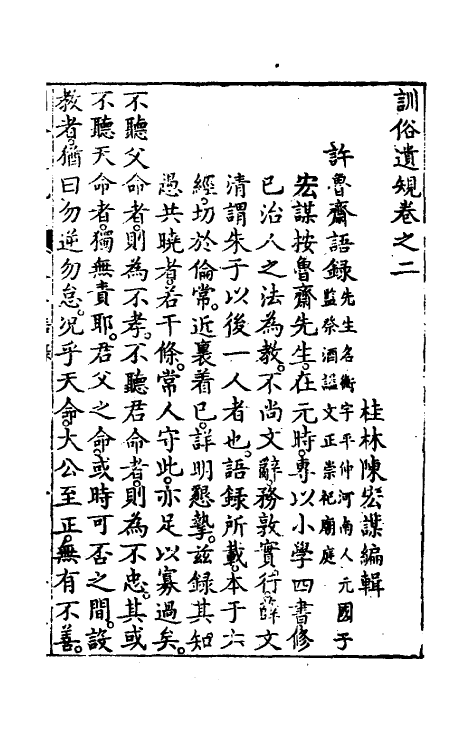 訓俗遺規卷之二
桂林陳宏謀編輯
許魯齋語錄先生名衡字平仲河南人元國子監祭酒諡文正崇祀廟庭
宏謀按魯齋先生。在元時。專以小學四書修
已治人之法為教。不尚文辭。務敦實行。薛文
清謂朱子以後一人者也。語錄所載。本于六
經。切於倫常。近裏着已。詳明懇摯。茲錄其知
過共曉者。若干條。常人守此。亦足以寡過矣。
不聽父命者。則為不孝。不聽君命者。則為不忠。其或
不聽天命者。獨無責耶。君父之命。或時可否之間。設
教者。猶曰勿逆勿怠。況乎天命。大公至正。無有不善。